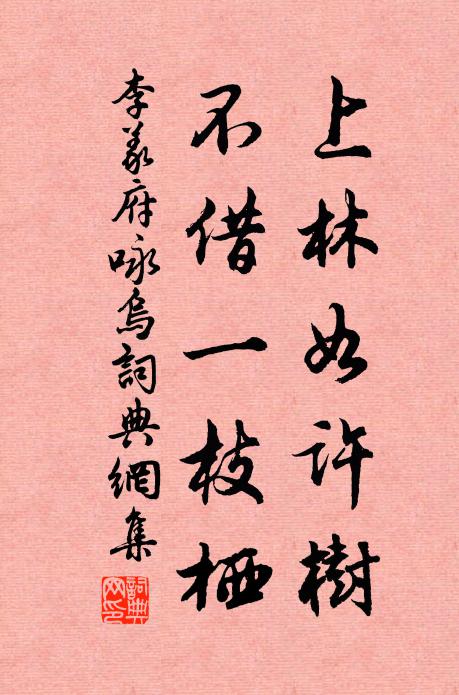 上林如許樹
不借一枝栖
李義府咏烏詞典網集
詞典網印